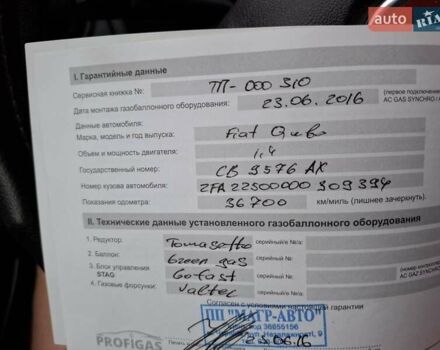 auto RIA
I. Гарантийные данные
Сервисная книжка №: ТП-000 310 (первое подключе
Дата монтажа газобаллонного оборудования: 23.06.2016 AC GAS SYNCHRO
Данные автомобиля:
Марка, модель и год выпуска: Fiat Qubo
Объем и мощность двигателя: 1,4
Государственный номер: СВ 9576 АХ
Номер кузова автомобиля: ZFA 22500000 309394
Показания одометра: 36 700 км/миль (лишнее зачеркнуть).
II. Технические данные установленного газобаллонного оборудования
1. Редуктор: Tomasetto серийный/е №/а:
2. Баллон: Green gas серийный/е №/а:
3. Блок управления
STAG Gofast серийный/е №/а:
4. Газовые форсунки: Valtec серийный/е №/а:
Согласен с условиями настоящей гарантии
ПП "МАГР-АВТО"
код 36855156
23.06.16
PROFIGAS